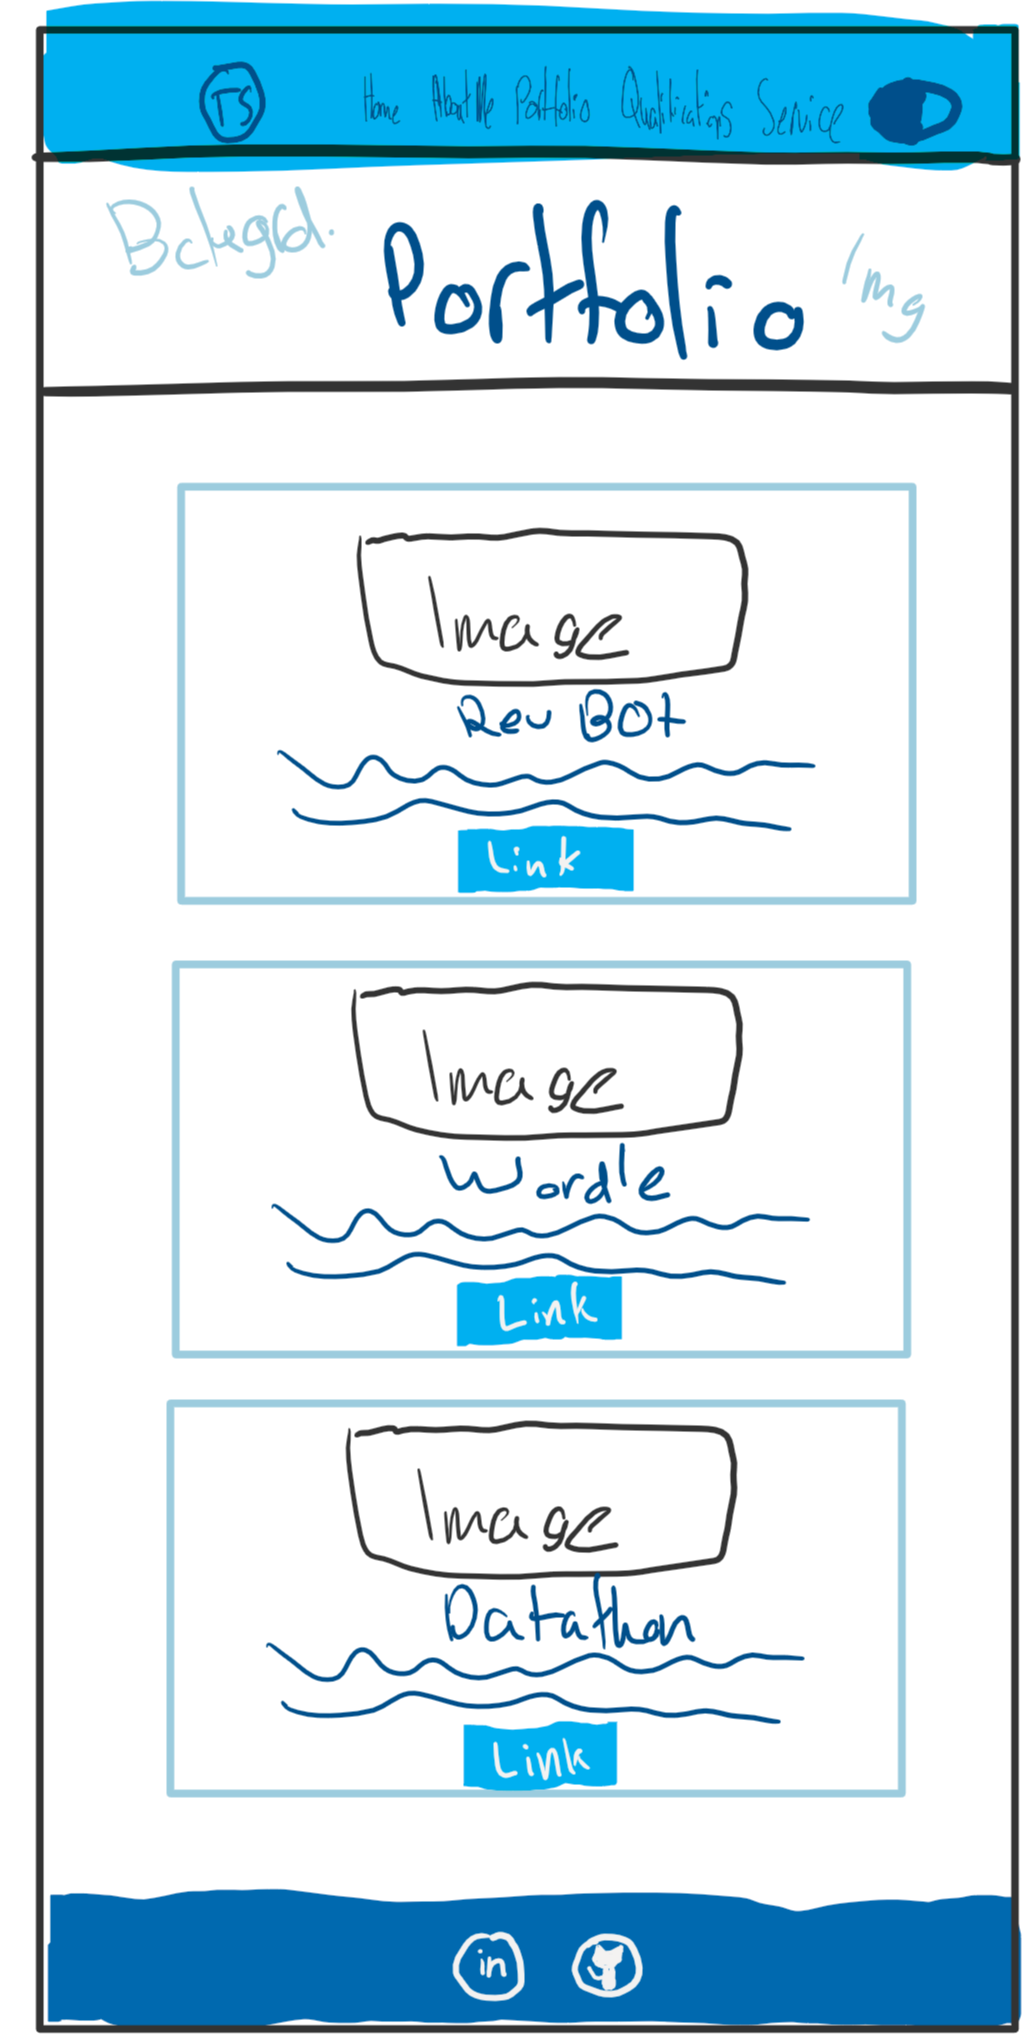 TS Home About Me Portfolio Qualifications Service
Bckgrd. Portfolio Img
Image
Rev BOt
Link
Image
Wordle
Link
Image
Datathon
Link
in